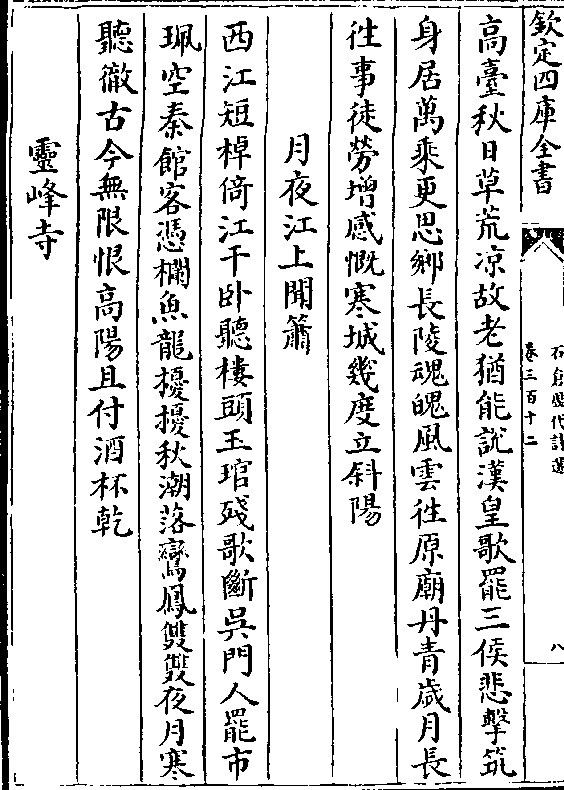 欽定四庫全書
石倉歷代詩選
卷三百十二
八
高臺秋日草荒凉故老猶能說漢皇歌罷三侯悲擊筑
身居萬乘更思鄉長陵魂魄風雲徃原廟丹青歲月長
徃事徒勞增感慨寒城幾度立斜陽
月夜江上聞簫
西江短棹倚江干卧聽樓頭玉琯殘歌斷吳門人罷市
珮空秦館客憑欄魚龍擾擾秋潮落鸞鳳雙雙夜月寒
聽徹古今無限恨高陽且付酒杯乾
靈峰寺